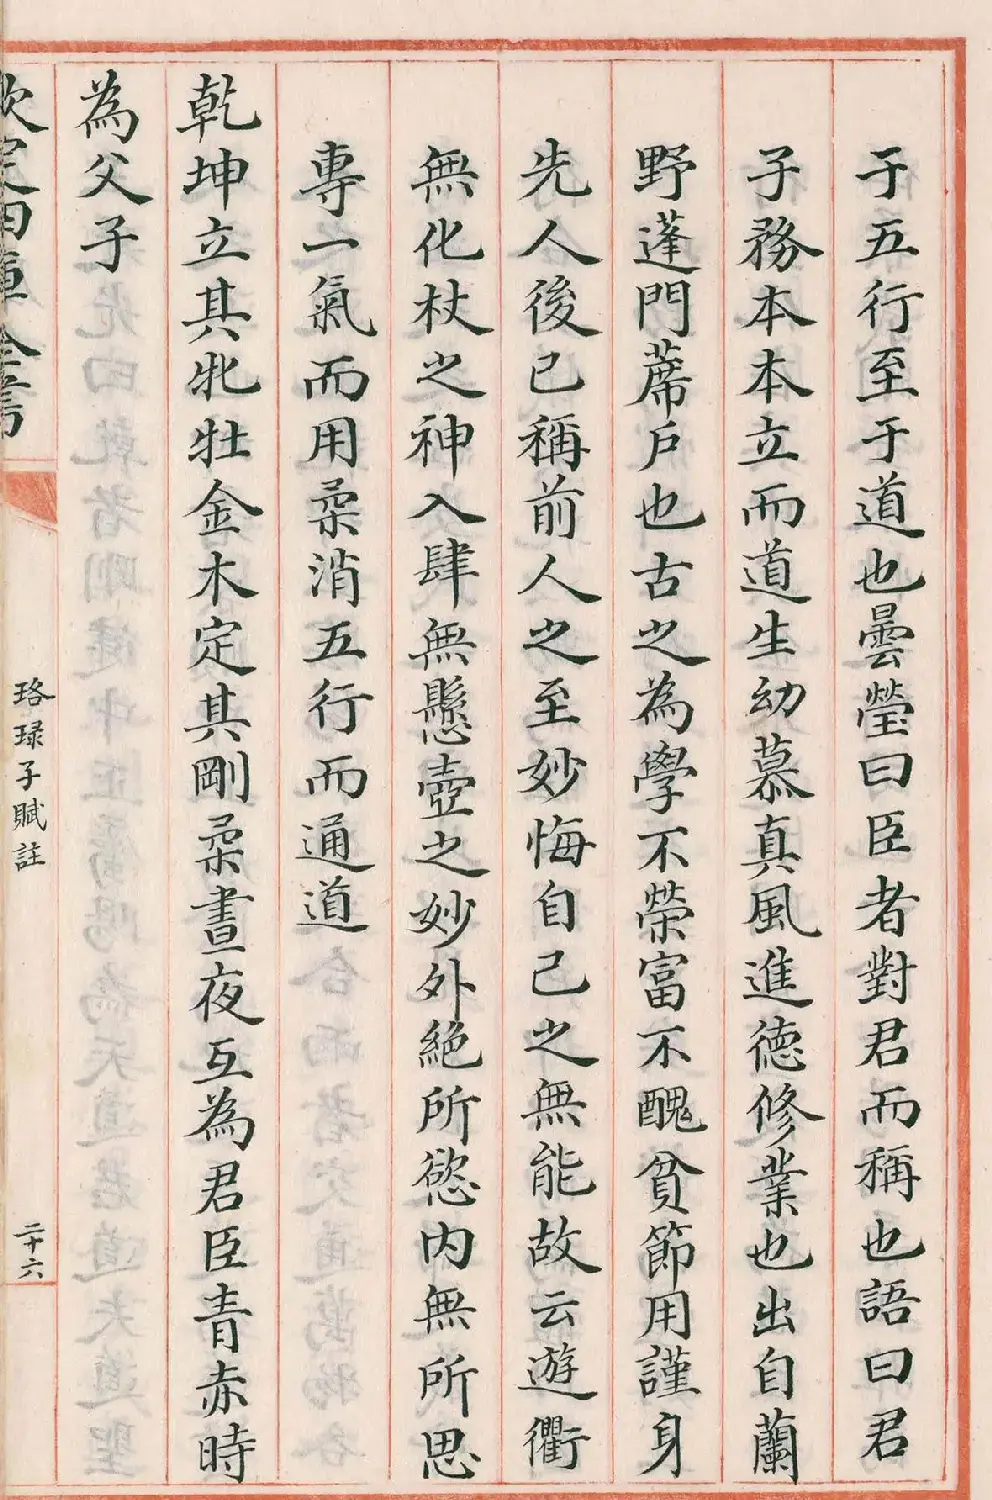 于五行至于道也曇瑩曰臣者對君而稱也語曰君
子務本本立而道生幼慕真風進德修業也出自蘭
野蓬門蓆戶也古之為學不榮富不醜貧節用謹身
先人後已稱前人之至妙悔自己之無能故云遊衢
無化杖之神入肆無懸壺之妙外絕所慾内無所思
專一氣而用柔消五行而通道
乾坤立其牝牡金木定其剛柔晝夜互為君臣青赤時
為父子
欽定四庫全書
珞琭子賦註
二十六